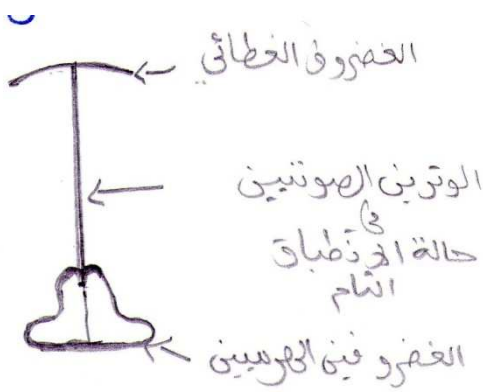 الغضروف الغطائي
الوترين الصوتيين
في
حالة الانطباق
التام
الغضروفين الهرميين